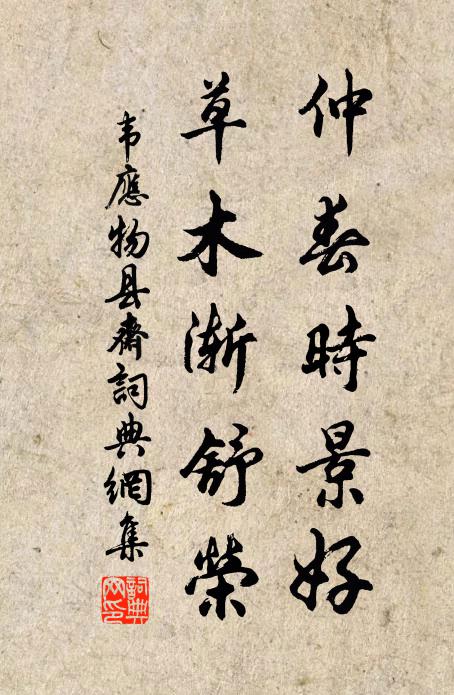 仲春時景好
草木漸舒榮
韦應物县齋詞典網集
詞典网印